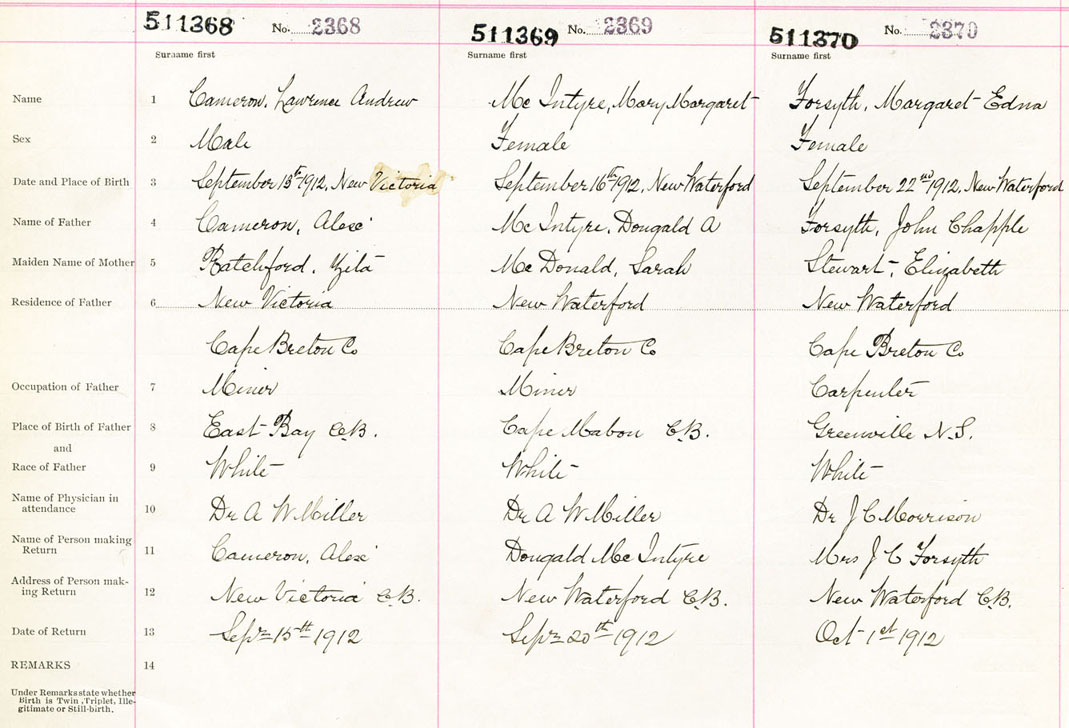 511368 No. 2368 511369 No. 2369 511370 No. 2370
Surname first Surname first Surname first
Name 1 Cameron, Lawrence Andrew Mc Intyre, Mary Margaret Forsyth, Margaret Edna
Sex 2 Male Female Female
Date and Place of Birth 3 September 13th 1912, New Victoria September 16th 1912, New Waterford September 22nd 1912, New Waterford
Name of Father 4 Cameron, Alexr Mc Intyre, Dougald A Forsyth, John Chapple
Maiden Name of Mother 5 Ratchford, Zita Mc Donald, Sarah Stewart, Elizabeth
Residence of Father 6 New Victoria New Waterford New Waterford
Cape Breton Co Cape Breton Co Cape Breton Co
Occupation of Father 7 Miner Miner Carpenter
Place of Birth of Father 8 East Bay C.B. Cape Mabou C.B. Greenville N.S.
and
Race of Father 9 White White White
Name of Physician in
attendance 10 Dr A W Miller Dr A W Miller Dr J C Morrison
Name of Person making
Return 11 Cameron, Alexr Dougald Mc Intyre Mrs J C Forsyth
Address of Person mak-
ing Return 12 New Victoria C.B. New Waterford C.B. New Waterford C.B.
Date of Return 13 Sept 15th 1912 Sept 20th 1912 Oct 1st 1912
REMARKS 14
Under Remarks state whether
Birth is Twin, Triplet, Ille-
gitimate or Still-birth.